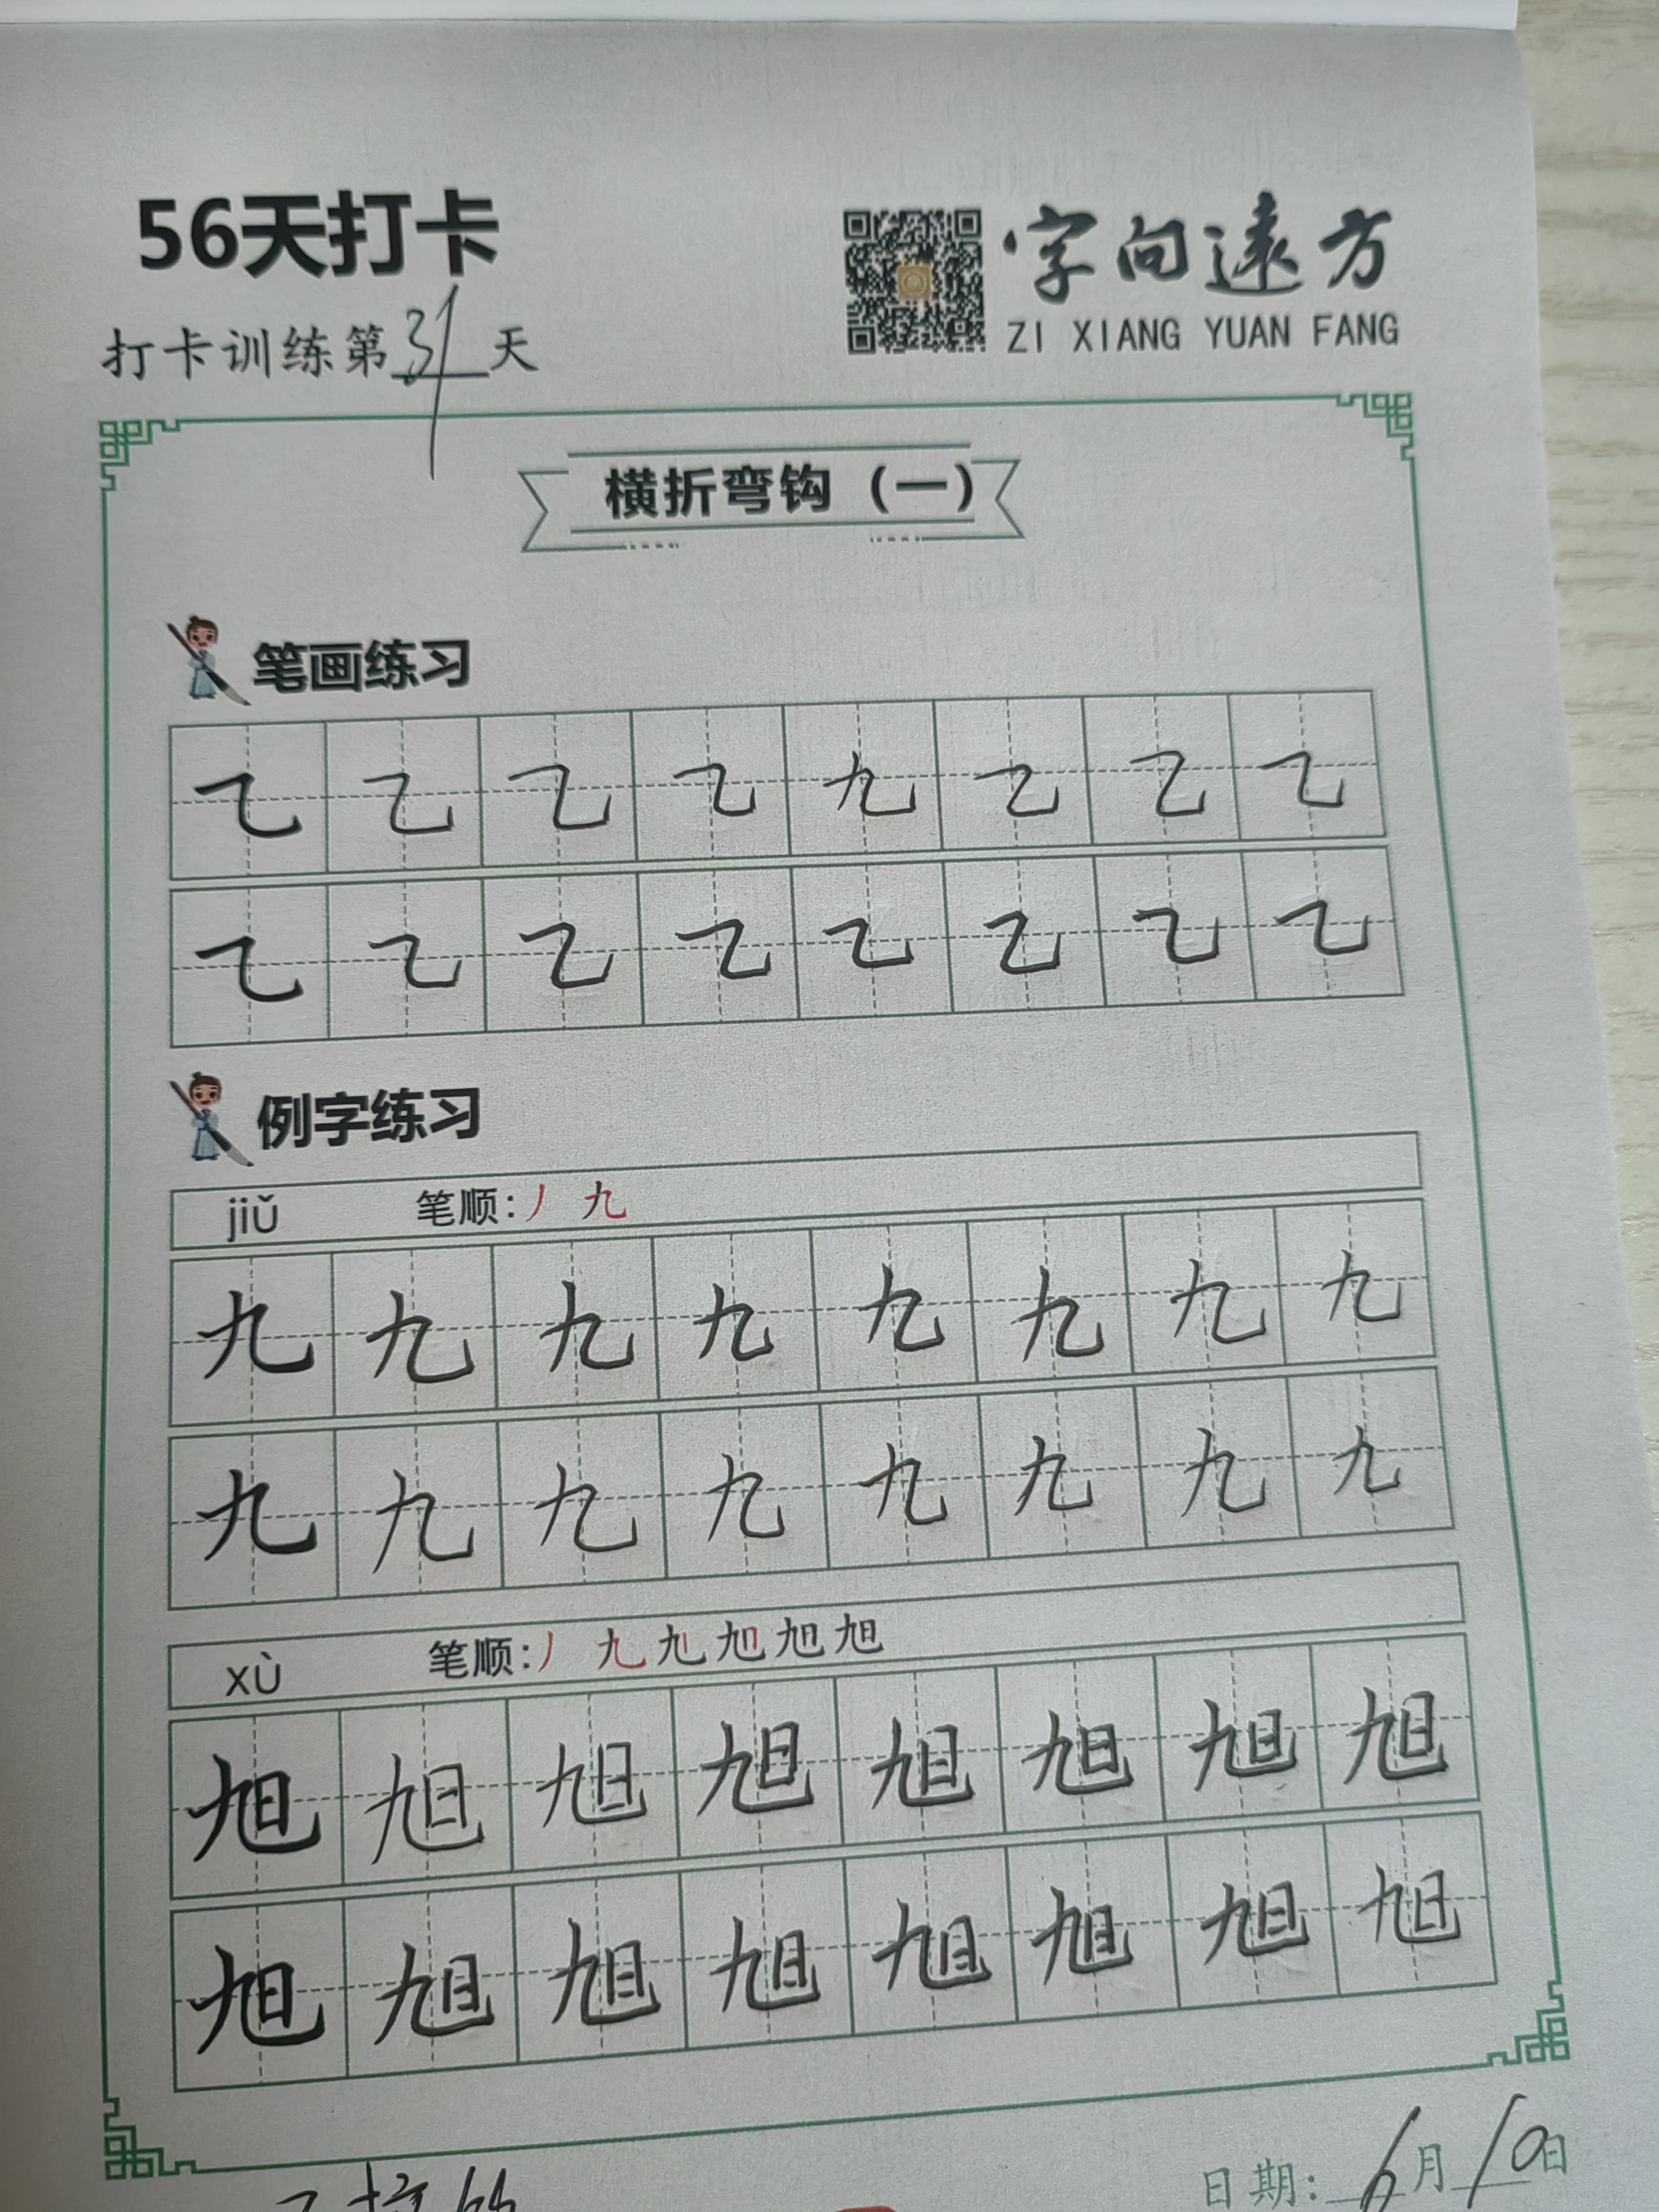 56天打卡
字向远方
ZI XIANG YUAN FANG
打卡训练第31天
横折弯钩（一）
笔画练习
㇈ ㇈ ㇈ ㇈ 九 ㇈ ㇈ ㇈
㇈ ㇈ ㇈ ㇈ ㇈ ㇈ ㇈ ㇈
例字练习
jiǔ 笔顺：丿 九
九 九 九 九 九 九 九 九
九 九 九 九 九 九 九 九
xù 笔顺：丿 九
旭 旭 旭 旭 旭 旭 旭 旭
旭 旭 旭 旭 旭 旭 旭 旭
日期：6月10日